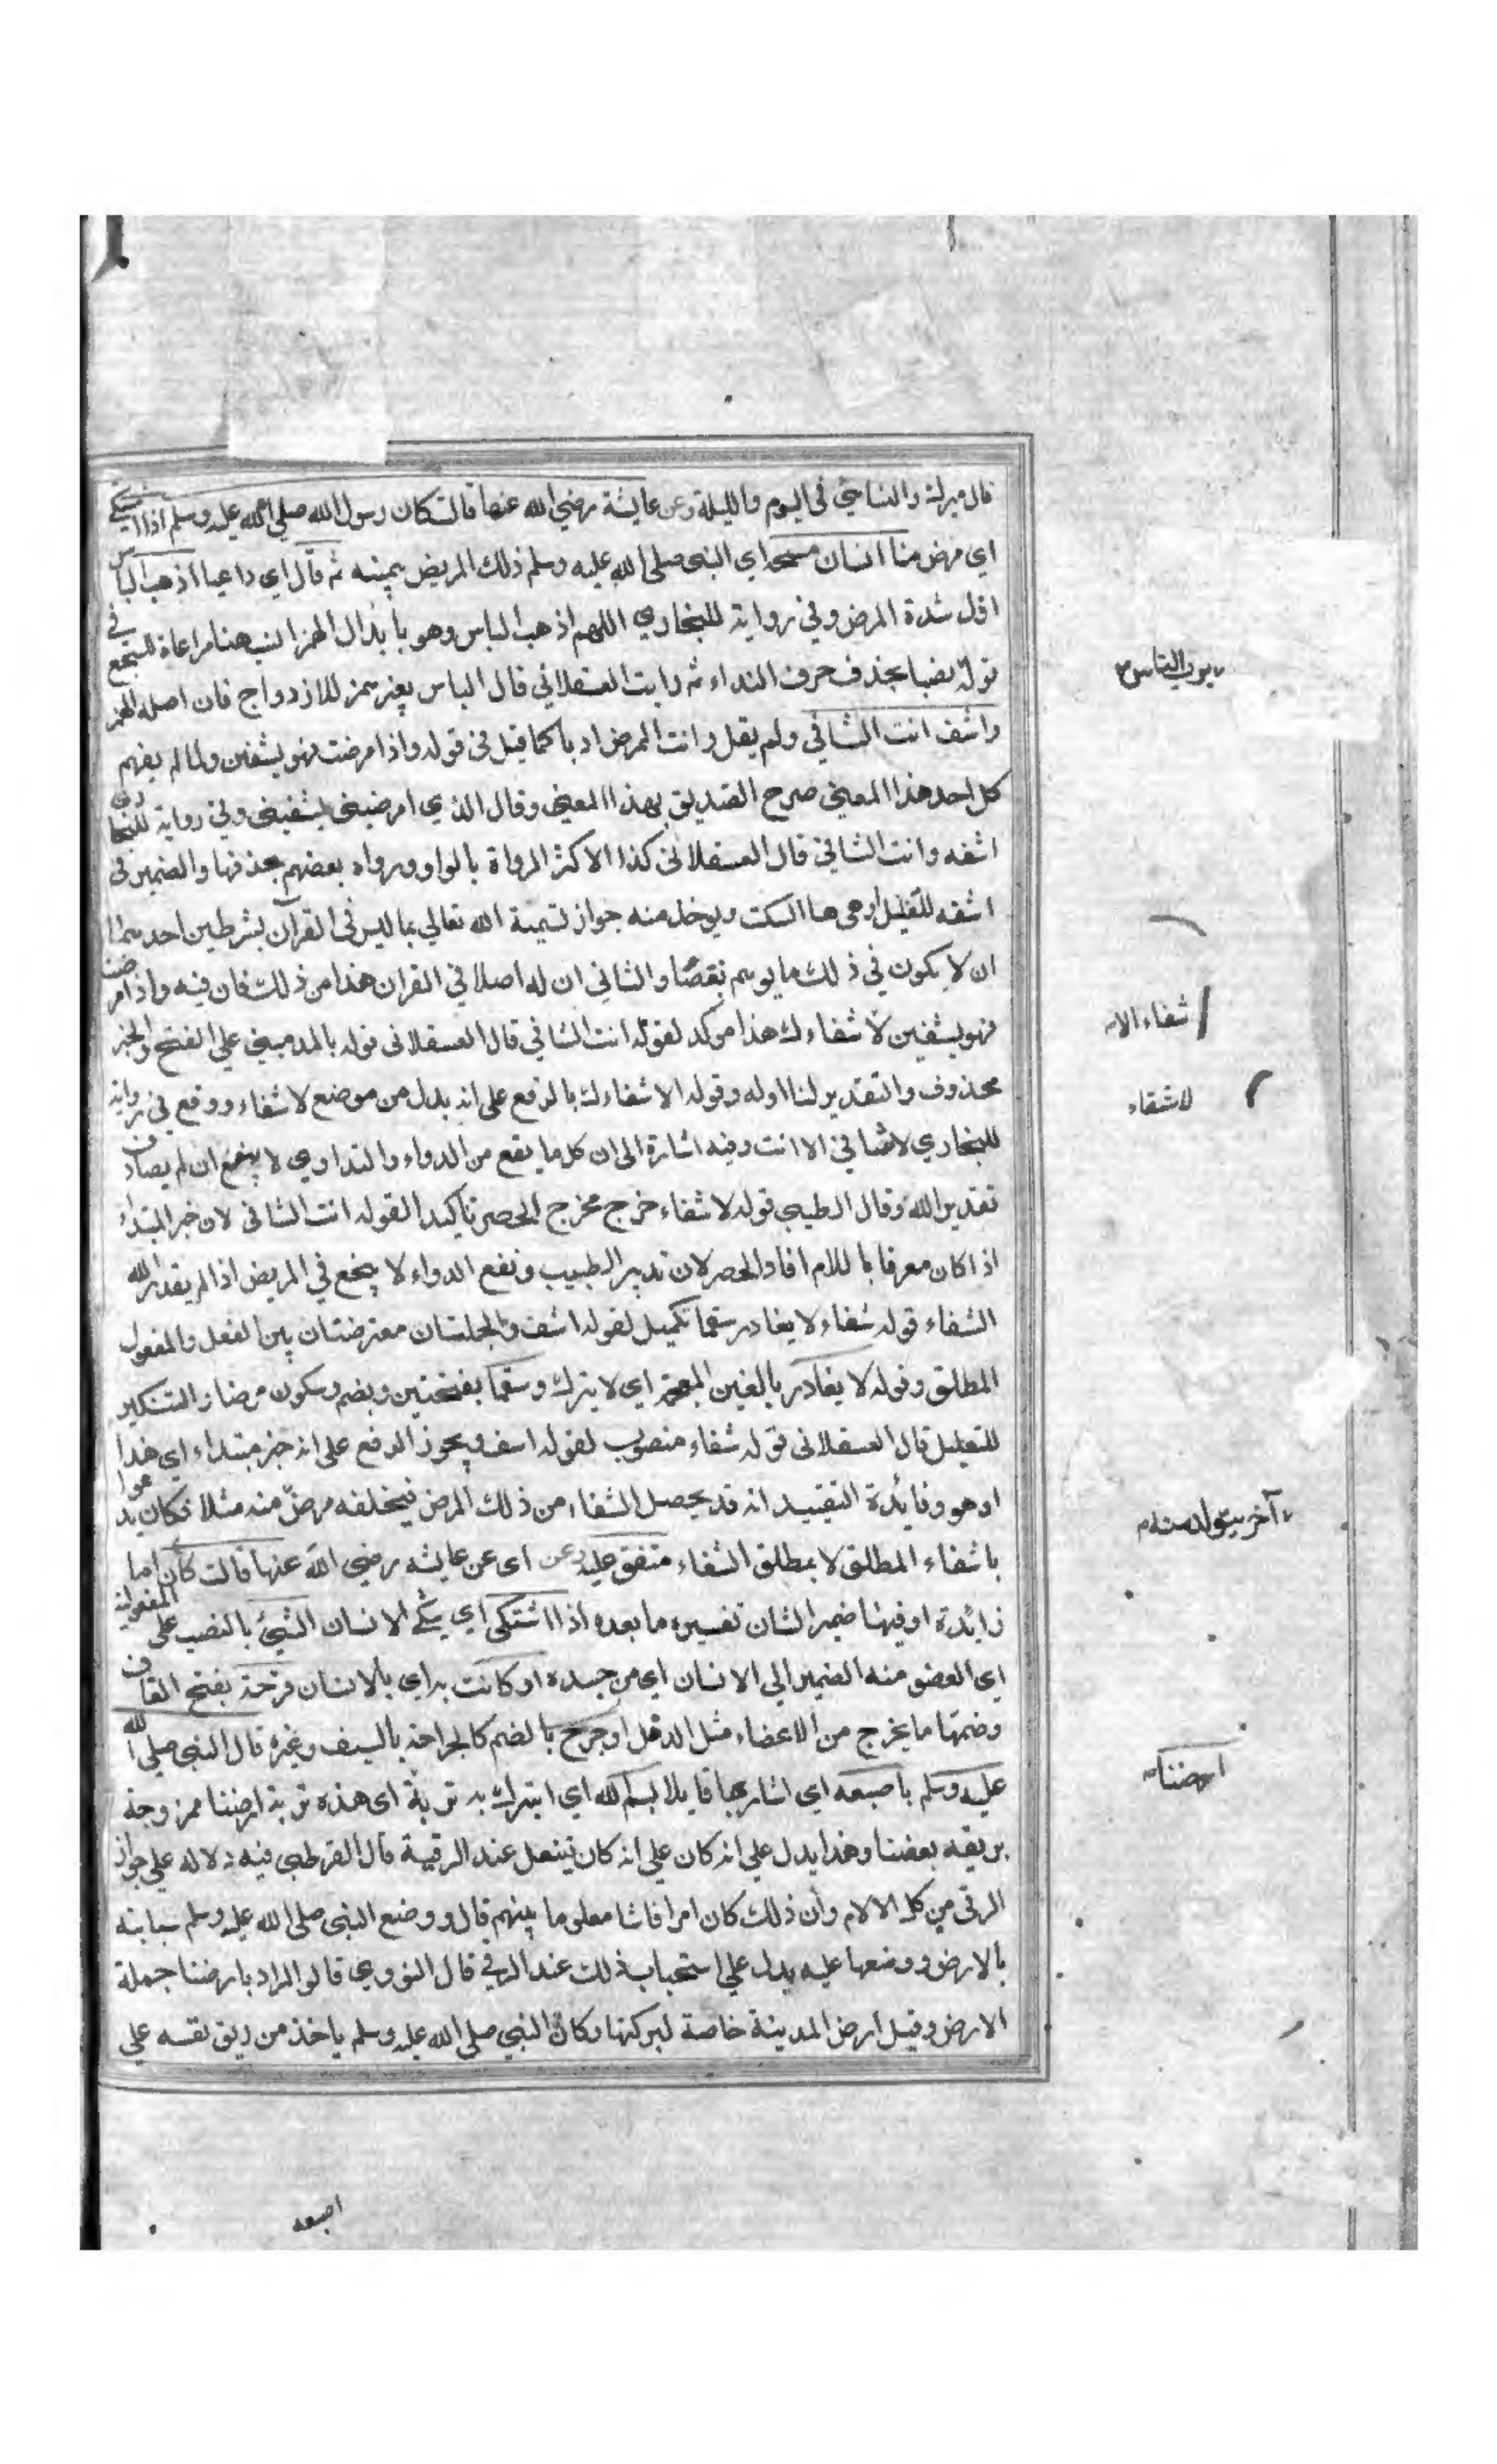 قال ميرك والنسائي في اليوم والليلة وعن عايشة رضي الله عنها قالت كان رسول الله صلى الله عليه وسلم اذا اشتكى
اي مرض منا انسان مسحه اي النبي صلى الله عليه وسلم ذلك المريض بيمينه ثم قال اي داعيا اذهب الباس
اي شدة المرض وفي رواية للبخاري اللهم اذهب الباس وهو بابدال الهمز هنا مراعاة للسجع في
قوله نصبا بحذف حرف النداء ثم رايت العسقلاني قال الباس بغير همز للازدواج فان اصله الهمز
واشف انت الشافي ولم يقل وانت الممرض ادبا كما قيل في قوله واذا مرضت فهو يشفين ولما لم يفهم
كل احد هذا المعني صرح الصديق بهذا المعني وقال الذي امرضني يشفيني وفي رواية للبخاري
اشفه وانت الشافي قال العسقلاني كذا لاكثر الرواة بالواو ورواه بعضهم بحذفها والضمير في
اشفه للعليل او هي هاا لسكت ويوخذ منه جواز تسمية الله تعالي بما ليس في القرآن بشرطين احدهما
ان لا يكون في ذلك ما يوهم نقصا والثاني ان له اصلا في القران هذا من ذلك فان فيه واذا مرضت
فهو يشفين لا شفاء لك هذا موكد لقوله انت الشافي قال العسقلاني قوله بالمد مبني علي الفتح والخبر
محذوف والتقدير لنا او له وقوله الا شفاءك بالرفع على انه بدل من موضع لا شفاء ووقع في رواية
للبخاري لا شافي الا انت وفيه اشارة الى ان كل ما يقع من الدواء والتداوي لا ينجع ان لم يصادف
تقدير الله وقال الطيبي قوله لا شفاء خرج مخرج الحصر تاكيدا لقوله انت الشافي لان خبر المبتداء
اذا كان معرفا باللام افاد الحصر لان تدبير الطبيب ونفع الدواء لا ينجع في المريض اذا لم يقدر الله
الشفاء قوله شفاء لا يغادر سقما تكميل لقوله اشف والجملتان معترضتان بين الفعل والمفعول
المطلق وقوله لا يغادر بالغين المعجمة اي لا يترك وسقما بفتحتين وبضم وسكون مرضا والتنكير
للتقليل قال العسقلاني قوله شفاء منصوب لقوله اشف ويجوز الرفع على انه خبر مبتداء اي هذا
او هو وفائدة التقييد انه قد يحصل الشفاء من ذلك المرض فيخلفه مرض منه مثلا فكان يدعوا
باشفاء المطلق لا بمطلق الشفاء متفق عليه وعن اي عن عايشه رضي الله عنها قالت كان اما
زائدة او فيها ضمير الشان تفسيره ما بعده اذا اشتكى اي شكي الانسان الشيئ بالنصب على المفعولية
اي العضو منه الضمير الي الانسان اي من جسده او كانت به اي بالانسان قرحة بفتح القاف
وضمها ما يخرج من الاعضاء مثل الدمل او جرح بالضم كالجراحة بالسيف وغيره قال النبي صلي الله
عليه وسلم باصبعه اي اشار بها قايلا بسم الله اي اتبرك به تربة اي هذه تربة ارضنا ممزوجة
بريقه بعضنا وهذا يدل علي انه كان علي انه كان يتفل عند الرقية قال القرطبي فيه دلاله علي جواز
الرقي من كل الالام وان ذلك كان امرا فاشا معلوما بينهم قال ووضع النبي صلى الله عليه وسلم سبابته
بالارض ووضعها عليه يدل علي استحباب ذلك عند الرقي قال النووي قالو المراد بارضنا جملة
الارض وقيل ارض المدينة خاصة لبركتها وكان النبي صلى الله عليه وسلم ياخذ من ريق نفسه علي
رب الناس
شفاء الا
لا شفاء
آخر يتولد منه
ارضنا
اصبعه